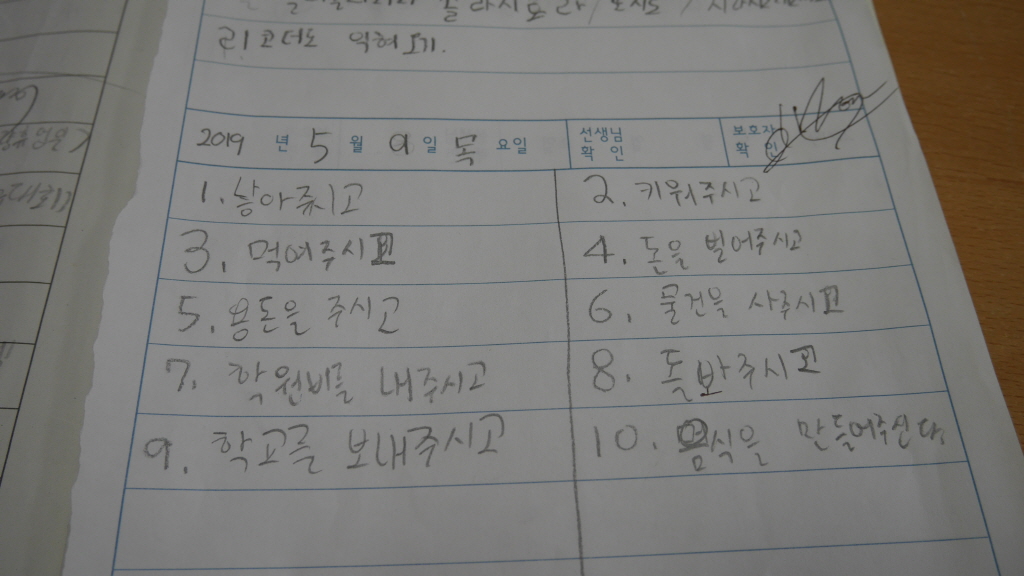 리코더도 익혀오기.
2019 년 5 월 9 일 목 요일 선생님 확 인 보호자 확 인
1. 낳아주시고 2. 키워주시고
3. 먹여주시고 4. 돈을 벌어주시고
5. 용돈을 주시고 6. 물건을 사주시고
7. 학원비를 내주시고 8. 돌봐주시고
9. 학교를 보내주시고 10. 음식을 만들어주신다.